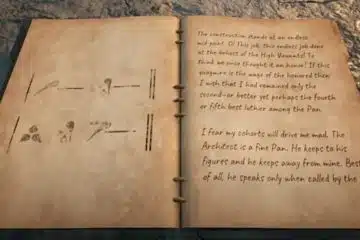 The construction stands at an endless
mid-point. O! This job, this endless job done
at the behest of the High Vaunuts! To
think we once thought it an honor! If this
quagmire is the wage of the honored then
I wish that I had remained only the
second-or better yet perhaps the fourth
or fifth best luthier among the Pan.
I fear my cohorts will drive me mad. The
Architect is a fine Pan. He keeps to his
figures and he keeps away from mine. Best
of all, he speaks only when called by the